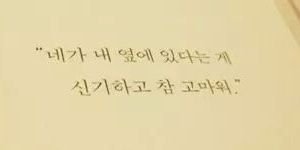 “네가 내 옆에 있다는 게
신기하고 참 고마워.”